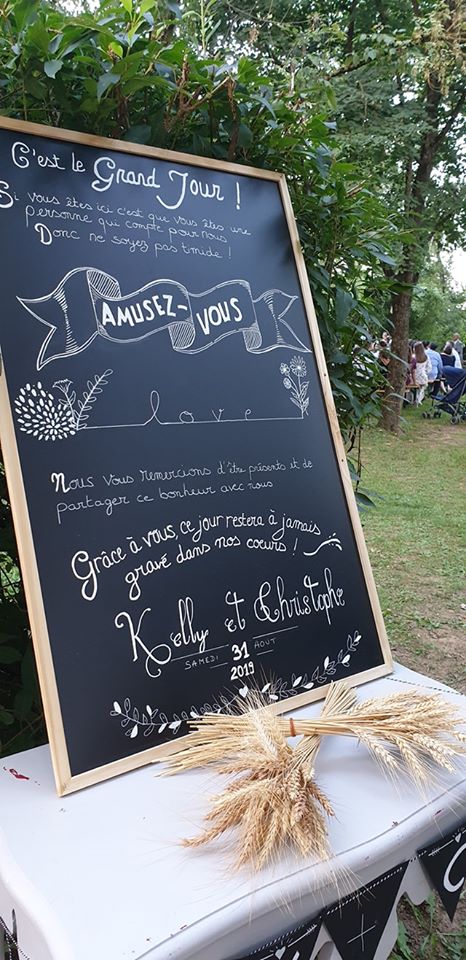 C'est le Grand Jour !
Si vous êtes ici c'est que vous êtes une
personne qui compte pour nous
Donc ne soyez pas timide !
AMUSEZ-VOUS
love
Nous vous remercions d'être présents et de
partager ce bonheur avec nous
Grâce à vous, ce jour restera à jamais
gravé dans nos coeurs !
Kelly et Christophe
SAMEDI 31 AOUT
2019